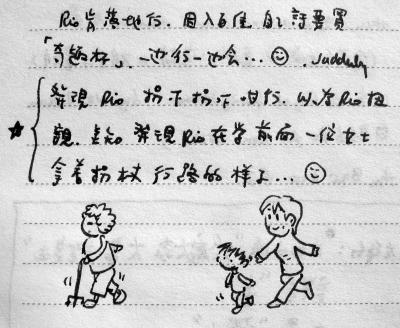 Rio 肯落地行. 因入百佳 自己話要買
「奇趣杯」. 一边行一边会... . suddenly
發現 Rio 拐下拐下咁行. 以為 Rio 扭
親. 點知 發現 Rio 在学前面一位女士
拿着拐杖行路的样子...